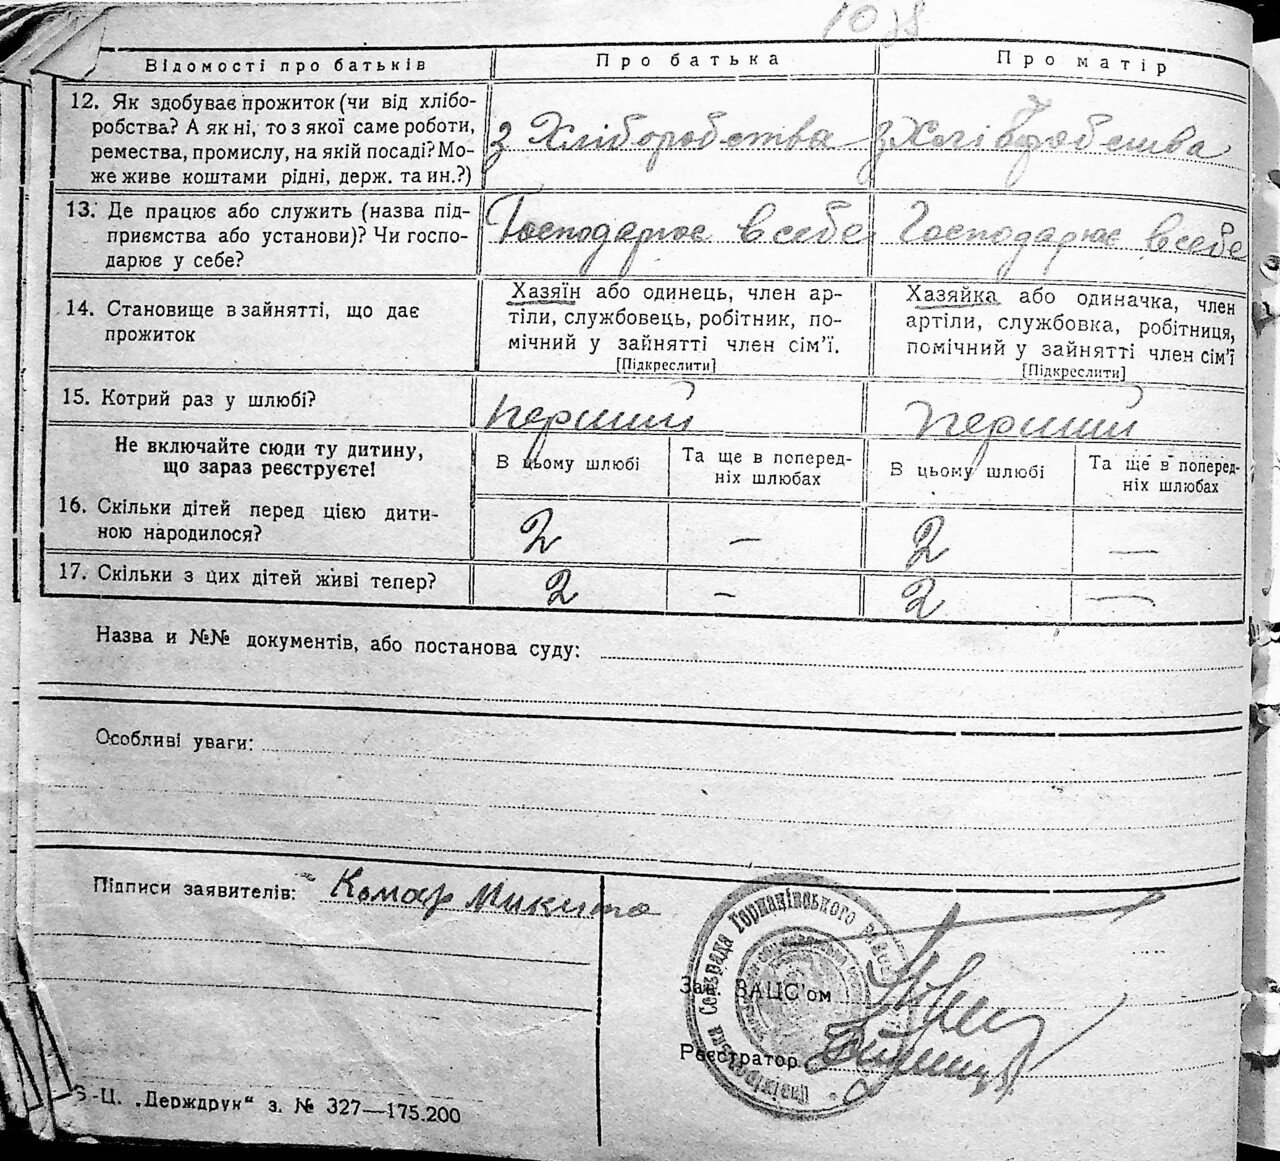 Відомості про батьків
Про батька
Про матір
12. Як здобуває прожиток (чи від хлібо-
робства? А як ні, то з якої саме роботи,
ремества, промислу, на якій посаді? Мо-
же живе коштами рідні, держ. та ин.?)
з Хліборобства
з Хліборобства
13. Де працює або служить (назва під-
приємства або установи)? Чи госпо-
дарює у себе?
Господарює в себе
Господарює в себе
14. Становище в зайнятті, що дає
прожиток
Хазяїн або одинець, член ар-
тіли, службовець, робітник, по-
мічний у зайнятті член сім'ї.
[Підкреслити]
Хазяйка або одиначка, член
артіли, службовка, робітниця,
помічний у зайнятті член сім'ї
[Підкреслити]
15. Котрий раз у шлюбі?
перший
перший
Не включайте сюди ту дитину,
що зараз реєструєте!
В цьому шлюбі
Та ще в поперед-
ніх шлюбах
В цьому шлюбі
Та ще в поперед-
ніх шлюбах
16. Скільки дітей перед цією дити-
ною народилося?
2
—
2
—
17. Скільки з цих дітей живі тепер?
2
—
2
—
Назва и №№ документів, або постанова суду:
Особливі уваги:
Підписи заявителів: Комар Микита
Зав. ЗАЦС'ом
Реєстратор
-Ц. „Держдрук“ з. № 327—175.200